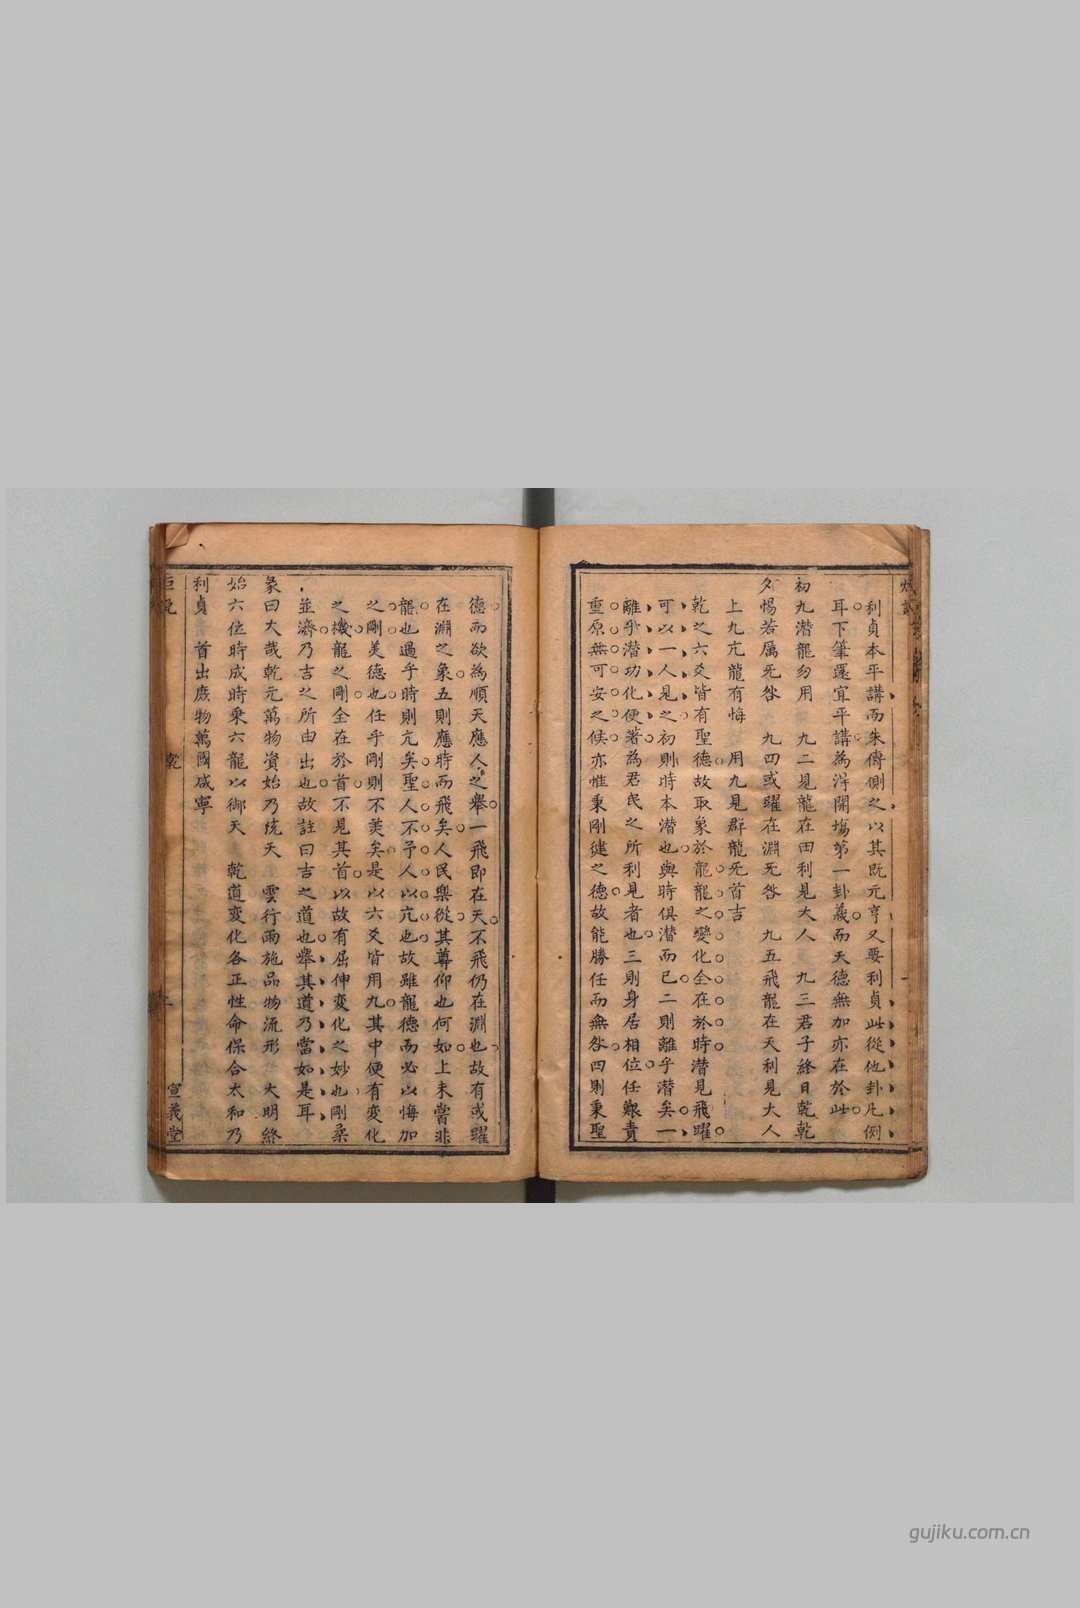 利貞本平講而朱傳側之以其既元亨又要利貞此從他卦凡例
耳下筆還宜平講為淂開塲第一卦羲而天德無加亦在於此
初九潜龍勿用　九二見龍在田利見大人　九三君子終日乾乾
夕惕若厲无咎　九四或曜在淵无咎　九五飛龍在天利見大人
上九亢龍有悔　用九見群龍无首吉
乾之六爻皆有聖德故取象於龍龍之變化全在於時潜見飛曜
可以一人見之初則時本潜也與時俱潜而已二則離乎潜矣一
離乎潜功化便著為君民之所利見者也三則身居相位任艱責
重原無可安之候亦惟秉剛健之德故能勝任而無咎四則秉聖
德而欲為順天應人之舉一飛即在天不飛仍在淵也故有或曜
在淵之象五則應時而飛矣人民樂從其尊仰也何如上未嘗非
龍也過乎時則亢矣聖人不予人以亢也故雖龍德而必以悔加
之剛美德也任乎剛則不羙矣是以六爻皆用九其中便有変化
之機龍之剛全在於首不見其首以故有屈伸変化之妙也剛柔
並濟乃吉之所由出也故註曰吉之道也舉其道乃當如是耳
彖曰大哉乾元萬物資始乃统天　雲行雨施品物流形　大明終
始六位時成時乘六龍以御天　乾道変化各正性命保合太和乃
利貞　首出庶物萬國咸寧
乾
宣義堂
gujiku.com.cn